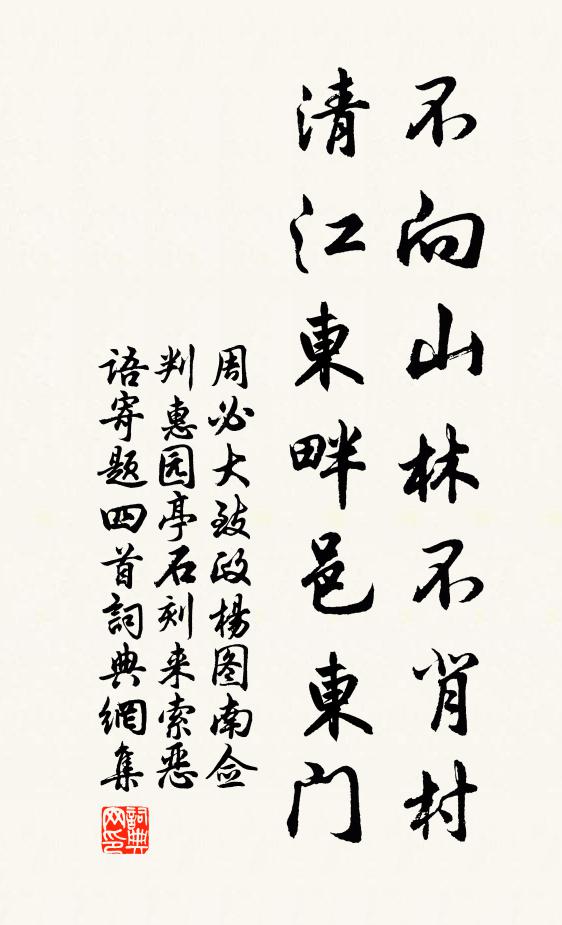 不向山林不背村
清江東畔邑東門
周必大致政楊图南佥
判惠园亭石刻来索恶
语寄题四首詞典網集
詞典
网印